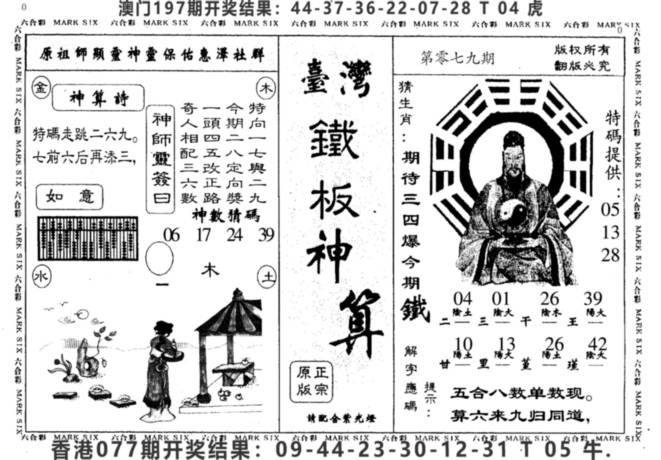 澳门197期开奖结果：44-37-36-22-07-28 T 04 虎
六合彩 MARK SIX 六合彩 MARK SIX 六合彩 MARK SIX 六合彩 MARK SIX
原祖師顯靈神靈保佑惠澤社群
金
神算詩
木
特碼走跳二六九。
七前六后再添三，
如意
神師靈簽曰
特向一七與二九
今期二八定向獎
一頭四五改正路
奇人相配三六數
神數猜碼
06 17 24 39
木
水
土
臺灣
鐵板神算
正宗
原版
請配合紫光燈
第零七九期
版权所有
翻版必究
猜生肖：期待三四爆今期鐵
特碼提供：05 13 28
04 01 26 39
陰土 陰火 陰木 陰火
二 三 干 王
10 13 26 42
陽土 陽火 陽土 陽火
甘 里 堇 瑾
解字應碼
提示：
五合八数单数现。
算六来九归同道，
香港077期开奖结果：09-44-23-30-12-31 T 05 牛.